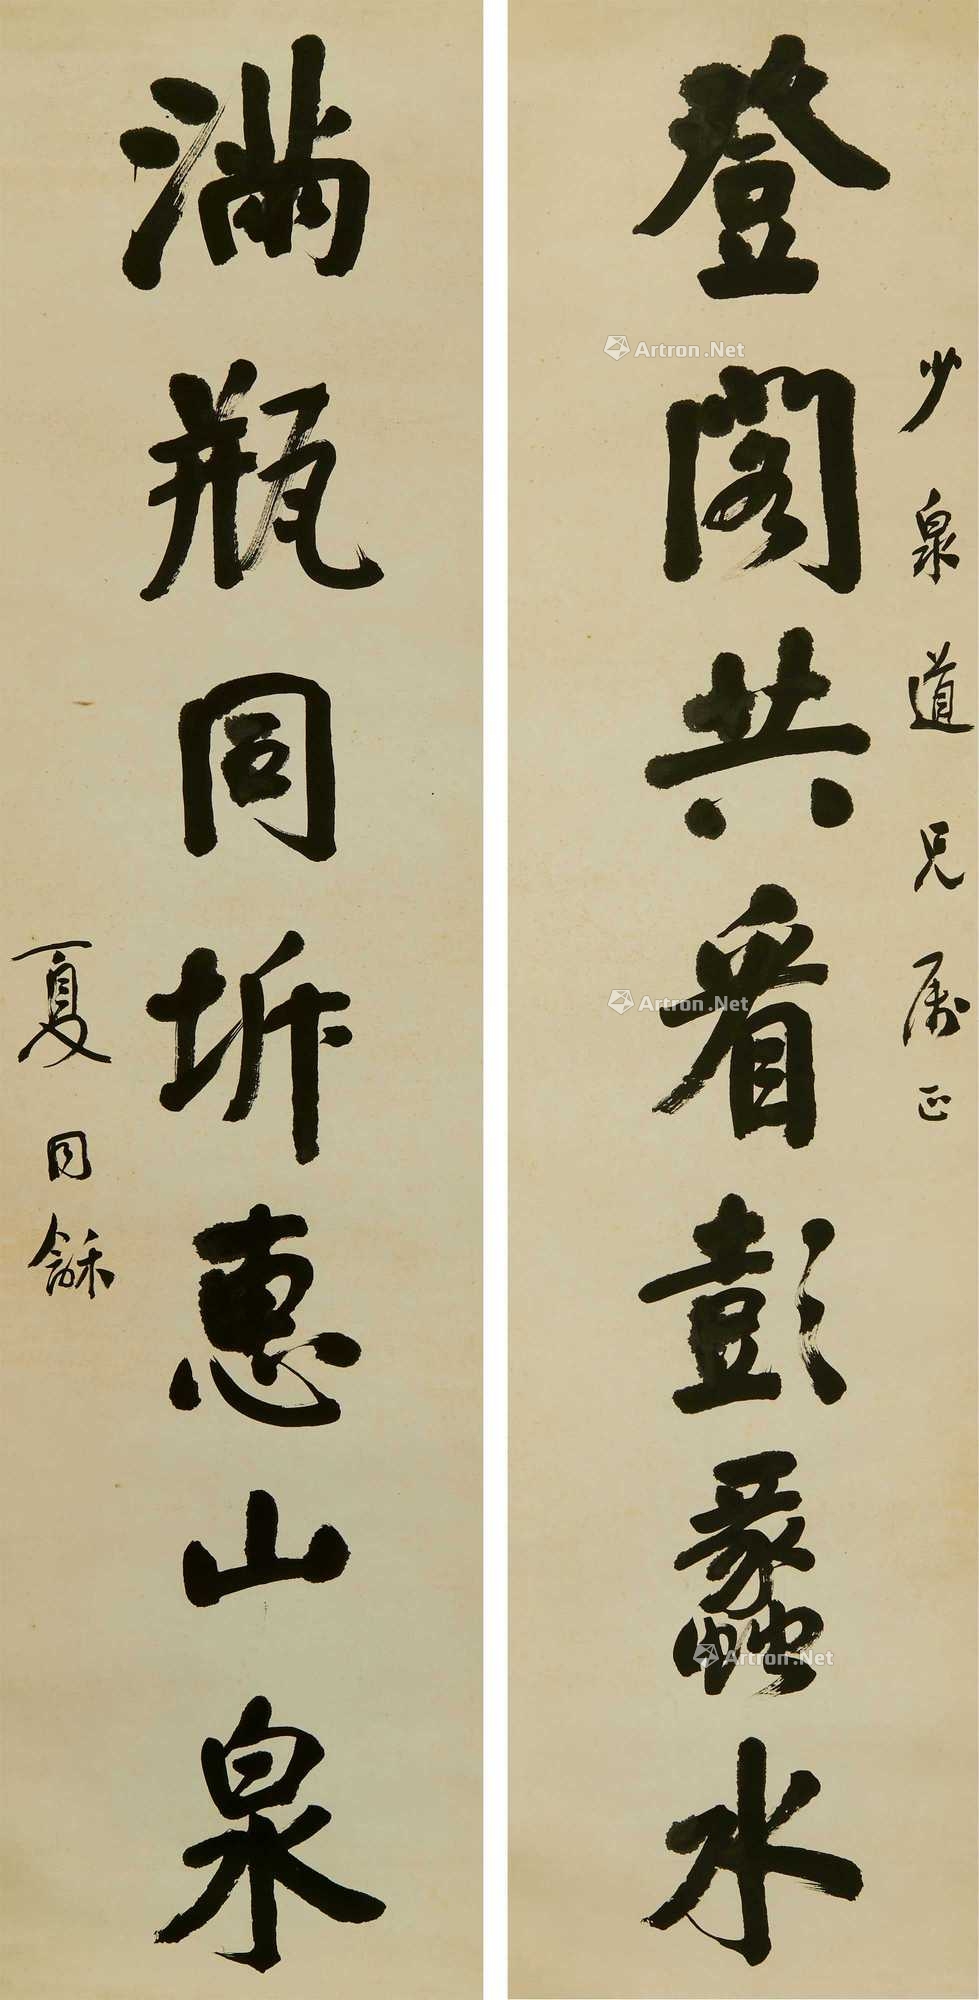 少泉道兄属正
登阁共看彭蠡水
满瓶同坼惠山泉
夏同龢
Artron.Net
Artron.Net
Artron.Net